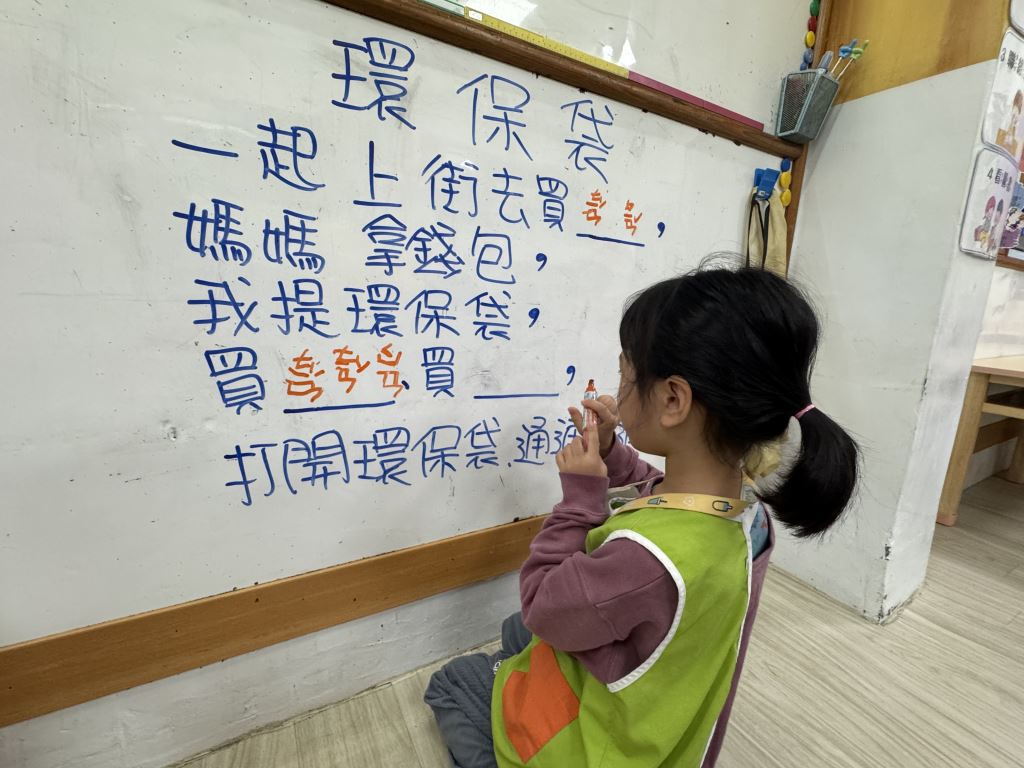 環保袋
一起上街去買 ,
媽媽拿錢包,
我提環保袋,
買 、買 ,
打開環保袋.通通
3
4 看